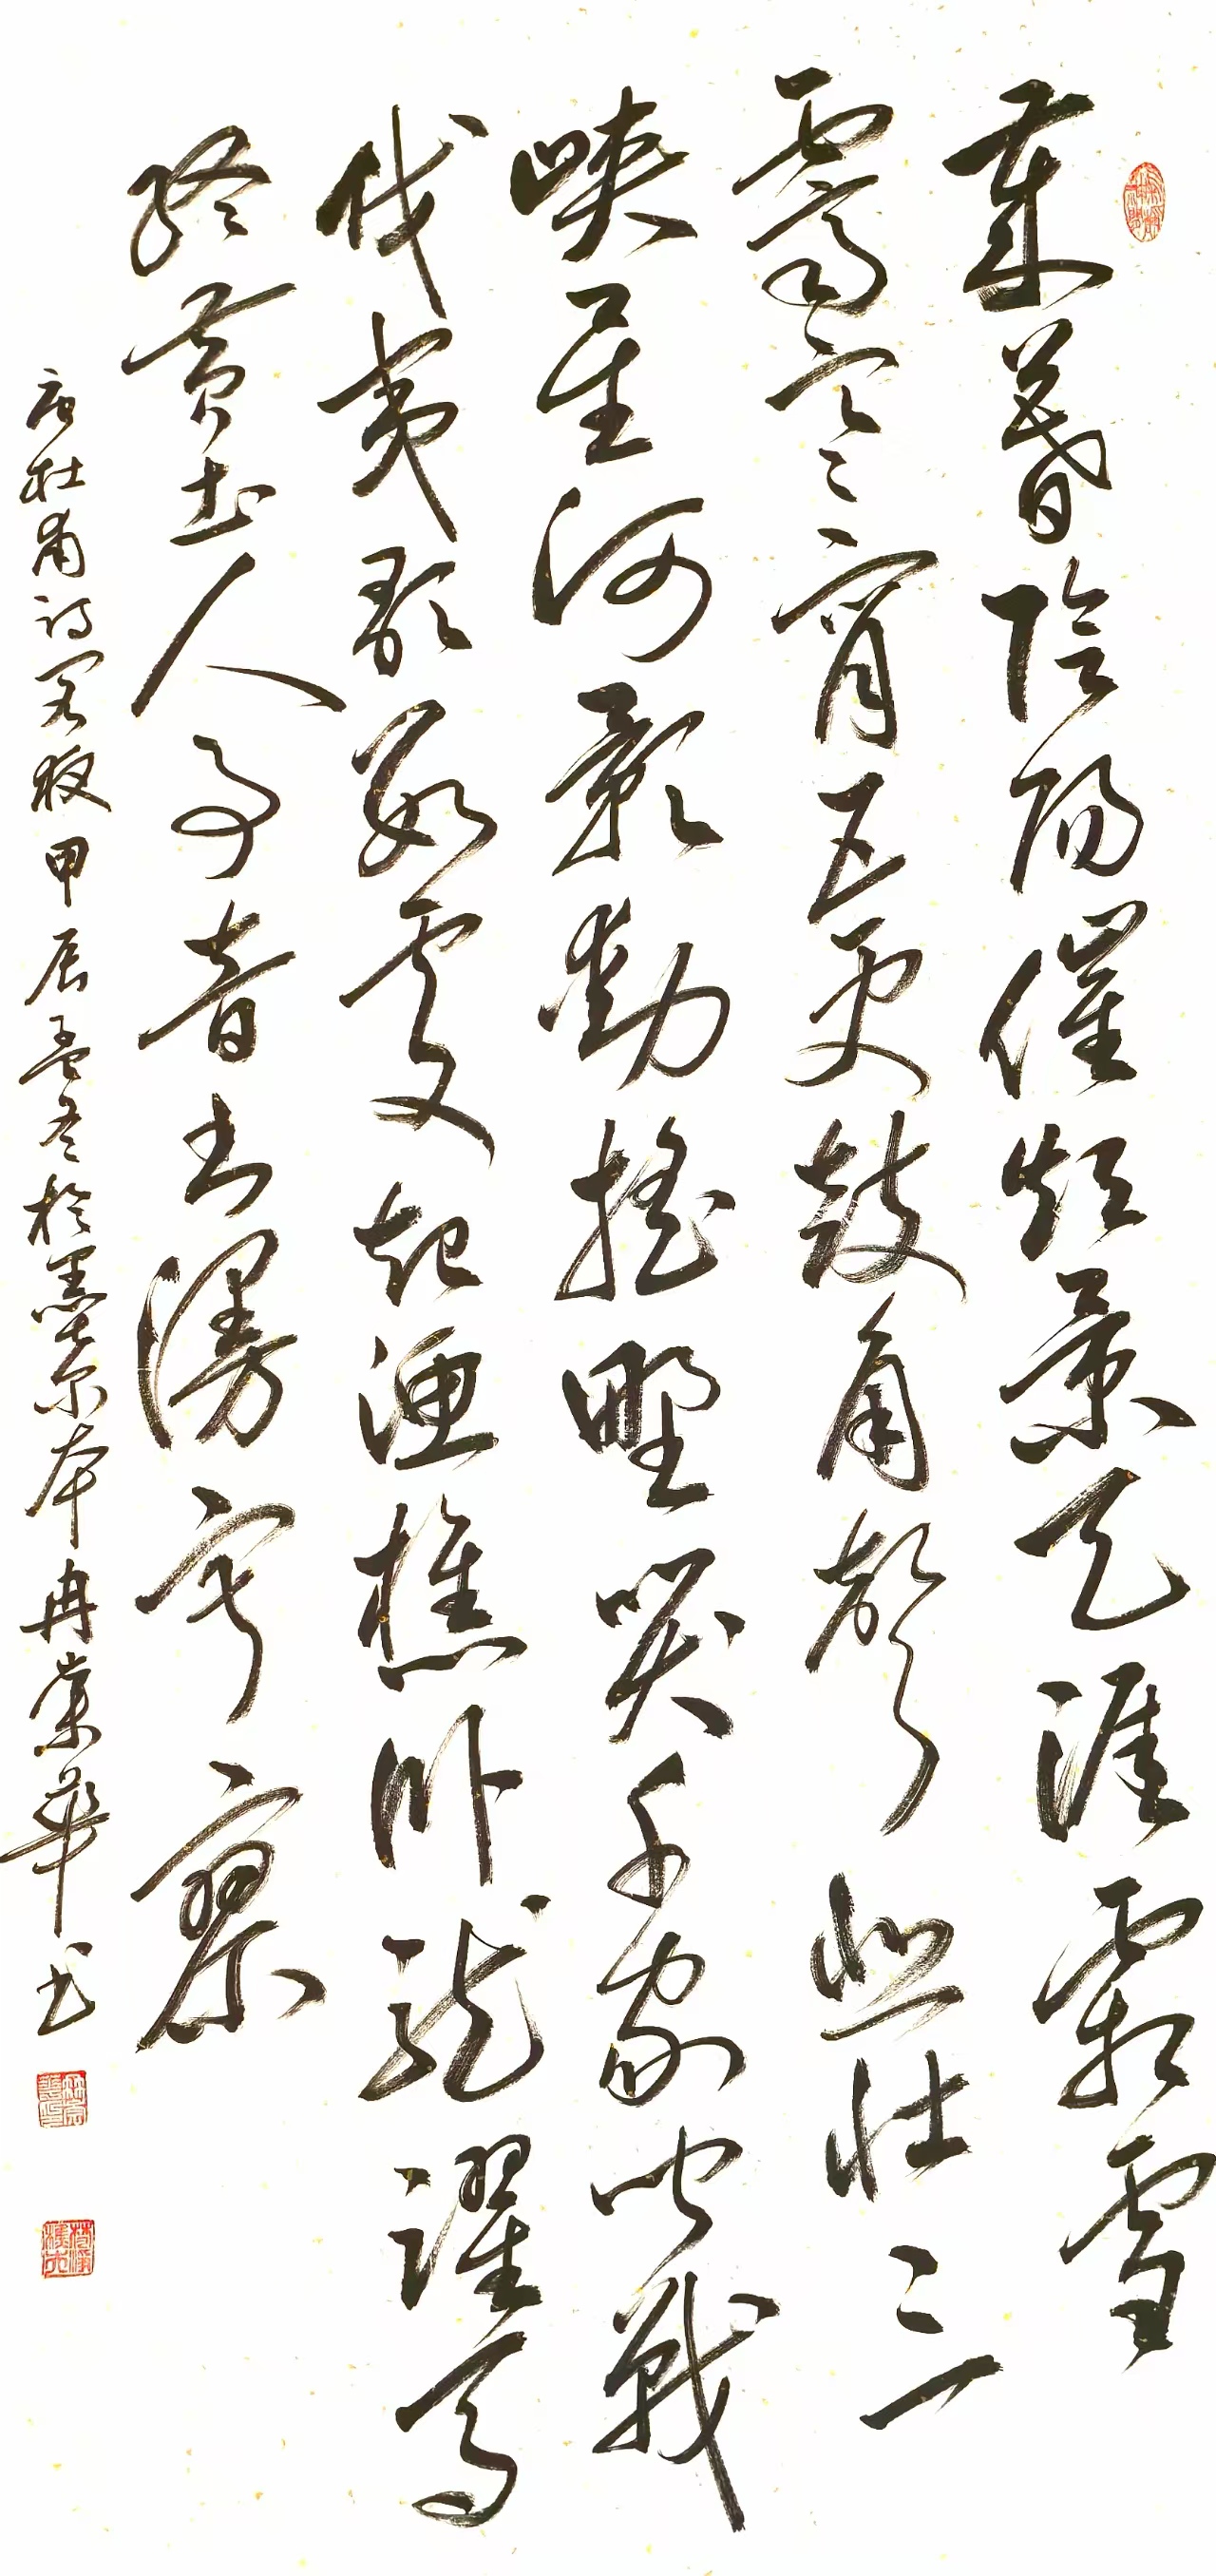 歲暮陰陽催短景天涯霜雪
霽寒宵五更鼓角聲悲壯三
峽星河影動搖野哭千家聞戰
伐夷歌數處起漁樵卧龍躍馬
終黃土人事音書漫寂寥
唐杜甫詩閣夜甲辰孟冬於墨尔本冉華书